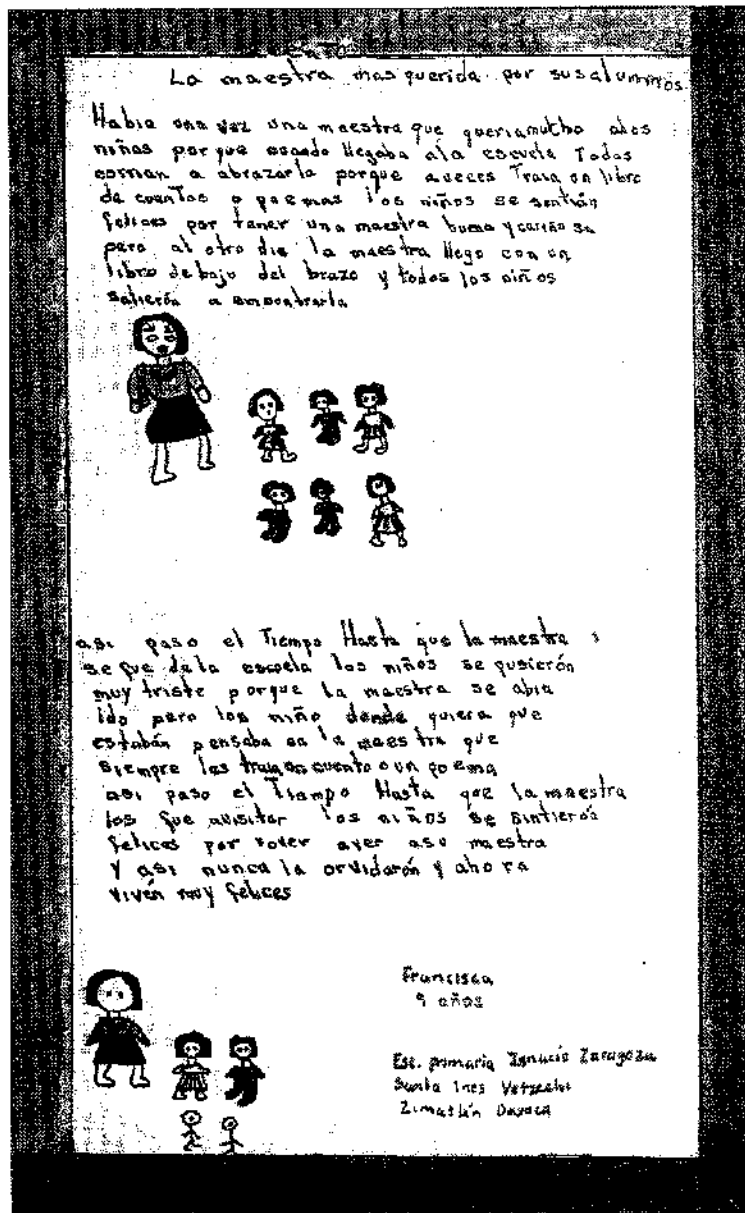 cuentos
La maestra mas querida por sus alumnos
Habia una vez una maestra que queriamutho alos
niñas porque cuando llegaba ala escuela Todos
corrian a abrazarla porque aveces Traia un libro
de cuentos o poemas los niños se sentián
felices por tener una maestra buena y cariño sa
pero al otro dia la maestra llego con un
libro debajo del brazo y todos los niños
salierón a encontrarla
asi paso el Tiempo Hasta que la maestra
se fue dela escuela los niños se pusierón
muy triste porque la maestra se abia
ido pero los niño donde quiera que
estabán pensaba en la maestra que
siempre les traia un cuento o un poema
asi paso el Tiempo Hasta que la maestra
los fue avisitar los niños se sintierón
felices por volver aver asu maestra
Y asi nunca la orvidarón y ahora
vivén muy felices
Francisca
9 años
Esc. primaria Ignacio Zaragoza
Santa Ines
Zimatlán Oaxaca